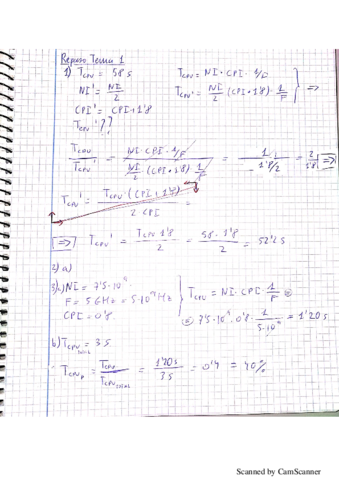 Repaso Tema 1
1) Tcpu = 58 s    Tcpu = NI · CPI · 1/F
NI' = NI/2    Tcpu' = NI/2 (CPI · 1'8) · 1/F } =>
CPI' = CPI · 1'8
Tcpu'??
Tcpu / Tcpu' = NI · CPI · 1/F / NI/2 (CPI · 1'8) 1/F = 1 / 1'8/2 = 2/1'8 =>
Tcpu' = Tcpu · (CPI · 1'8) / 2 CPI =
=> Tcpu' = Tcpu · 1'8 / 2 = 58 · 1'8 / 2 = 52'2 s
2) a)
3) a) NI = 7'5 · 10⁹
F = 5 GHz = 5 · 10⁹ Hz } Tcpu = NI · CPI · 1/F =
CPI = 0'8    = 7'5 · 10⁹ · 0'8 · 1/5·10⁹ = 1'20 s
b) Tcpu = 3 s
Tcpu = Tcpu / Tcpu = 1'20 s / 3 s = 0'4 = 40%
Scanned by CamScanner